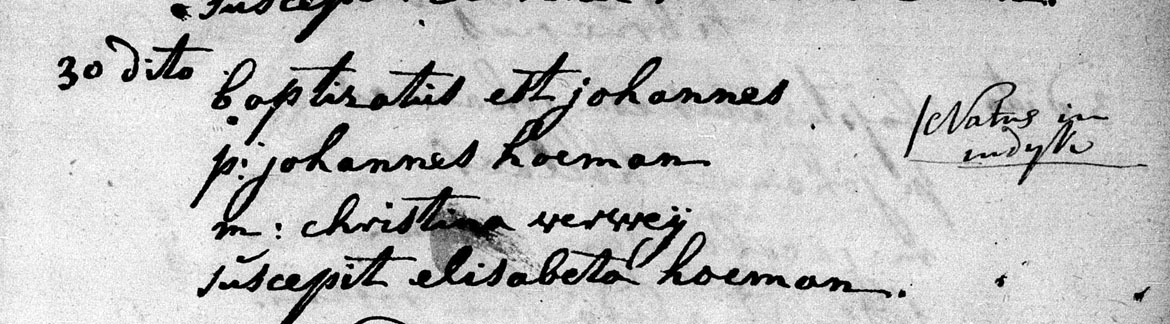 suscepit
30 dito
baptizatus est johannes
p: johannes hoeman
m: christina verweij
suscepit elisabeta hoeman.
Natus in